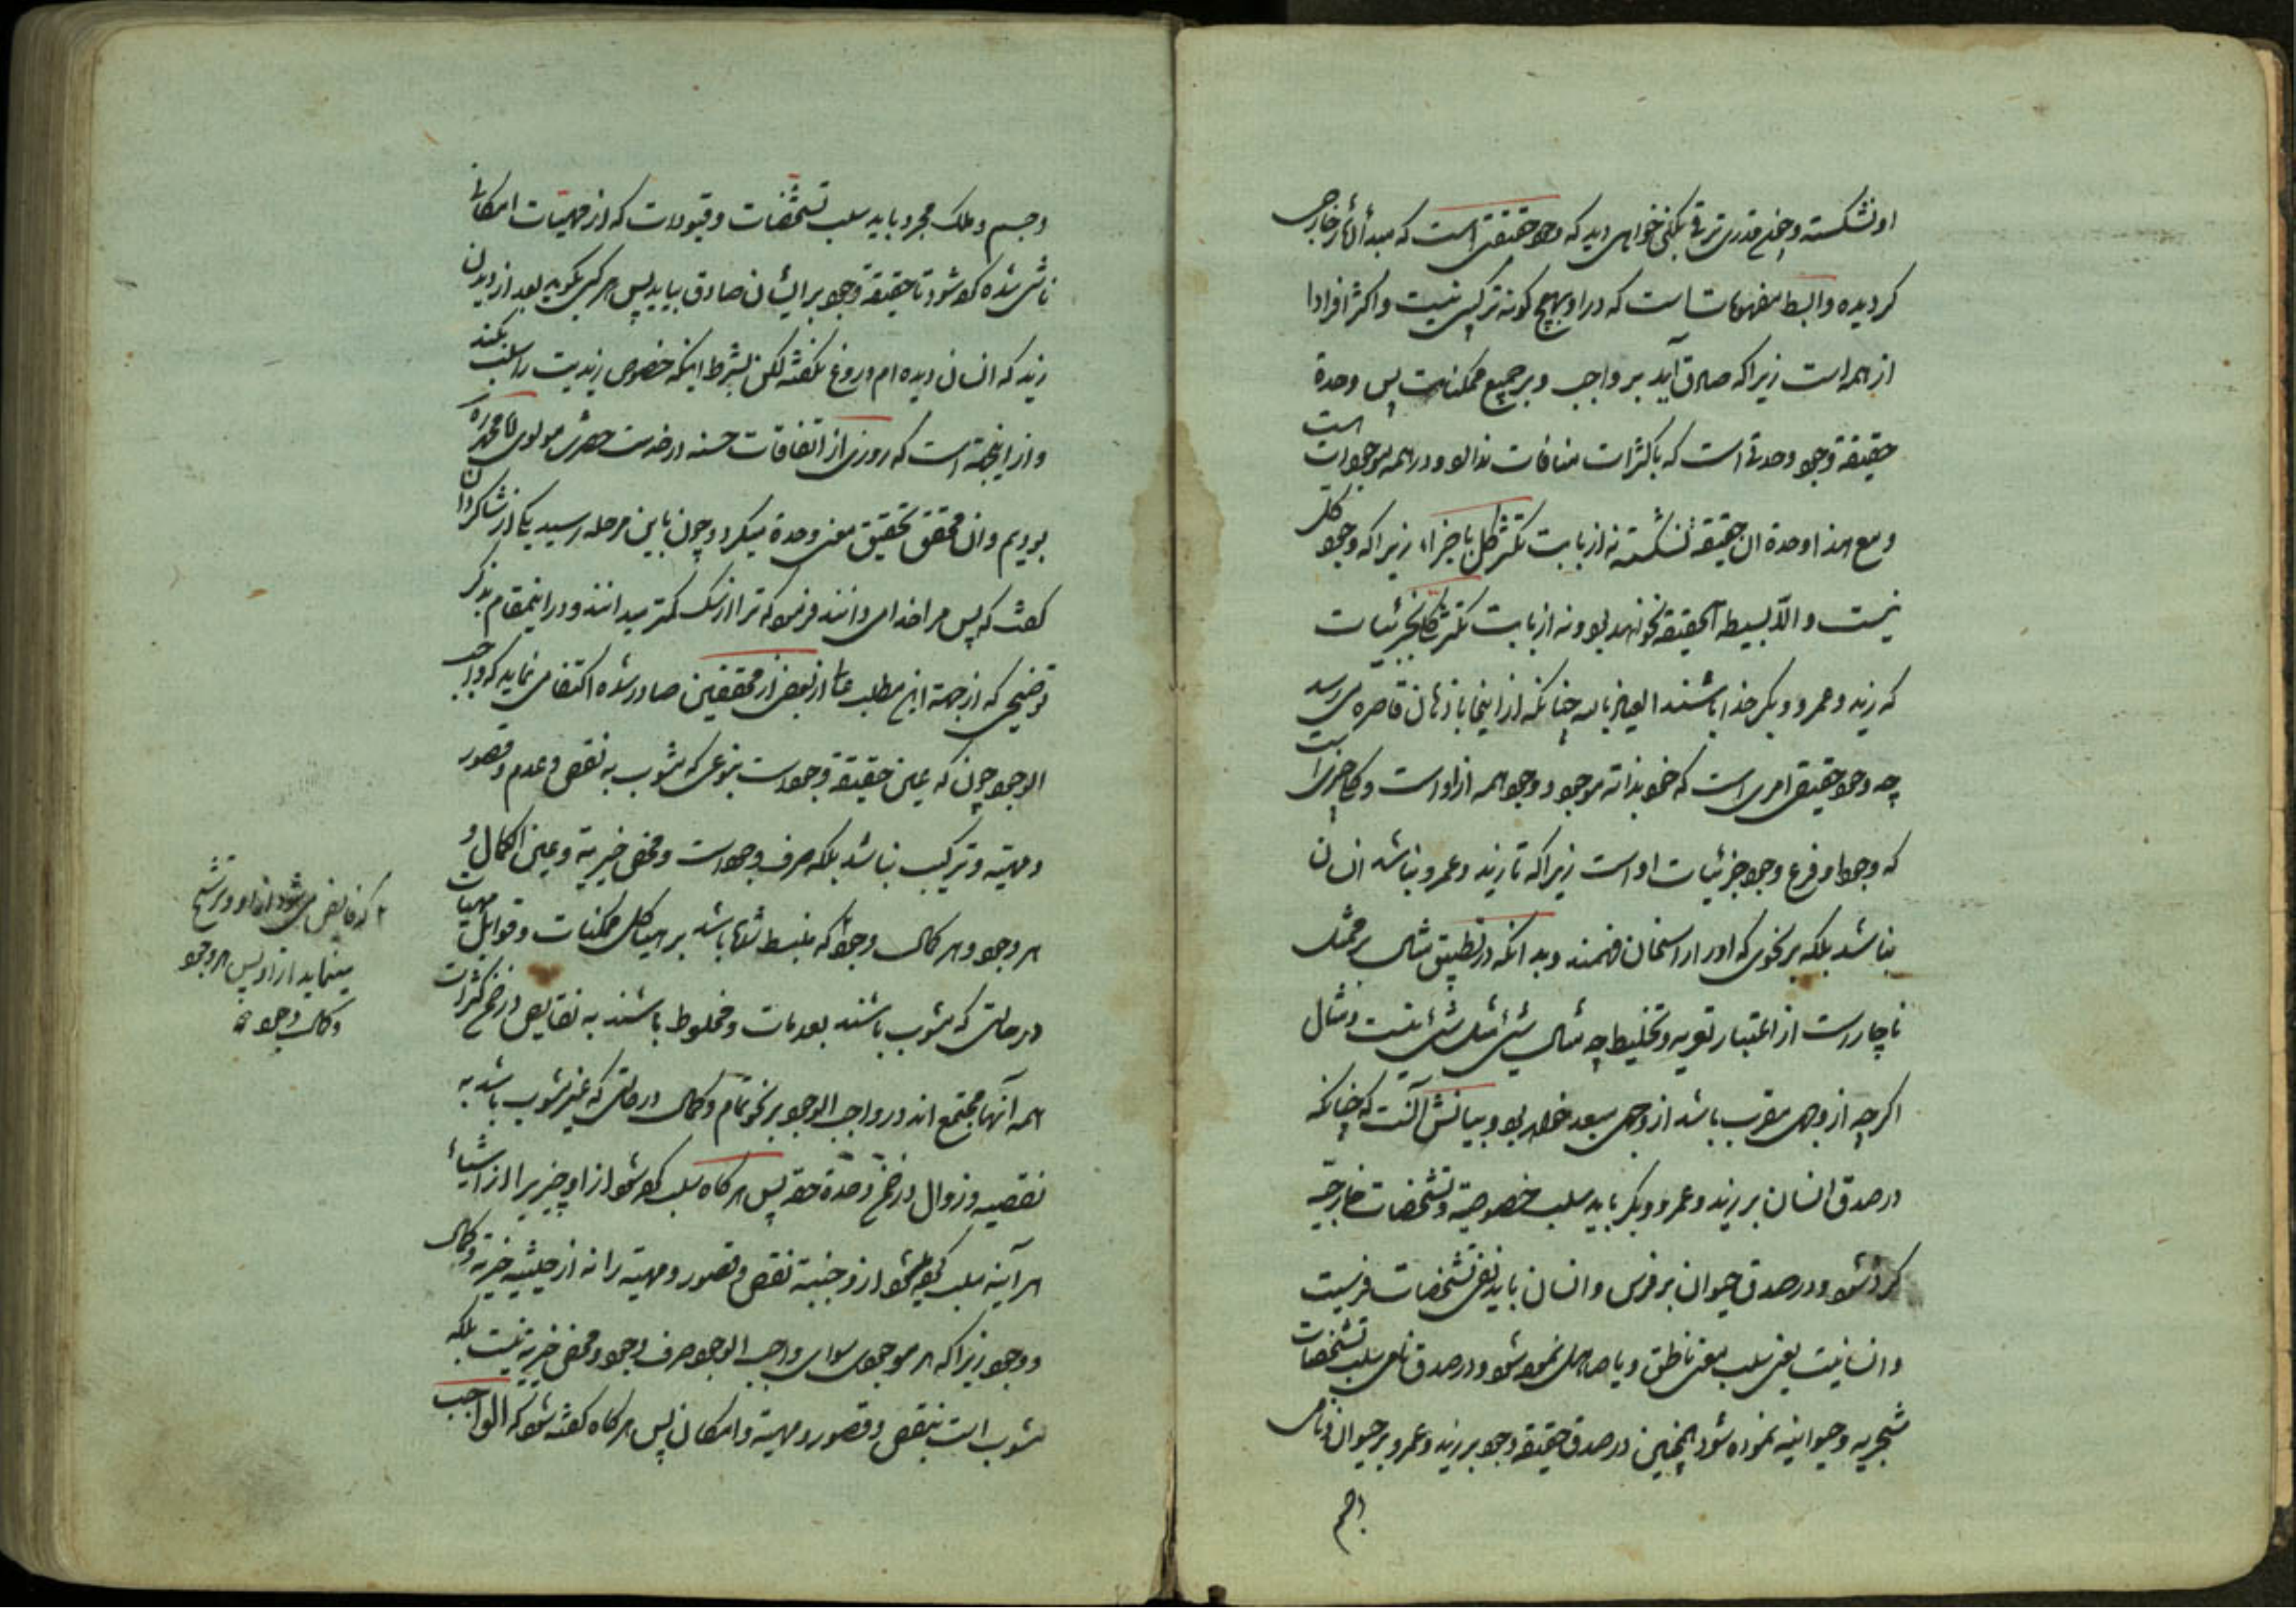 او نشکسته و چنین قدری ترقی بکنی خواهی دید که وجود حقیقتی است که مبدأ آثار خارجی
کردیده و ابسط مفهومات است که در او بهیچ کونه ترکیبی نیست و اکثر افرادا
از همه است زیرا که صادق آید بر واجب و بر جمیع ممکنات پس وحدة
حقیقة وجود وحدتی است که با کثرات منافات ندارد و در همه موجودات است
و مع هذا وحدة ان حقیقة نشکسته نه از بابت تکثر کل باجزاء زیرا که وجود کل
نیست و الا بسیطة الحقیقة نخواهد بود و نه از بابت تکثر کلی بجزئیات
که زید و عمرو و بکر خدا باشند العیاذ بالله چنانکه از اینجا باذهان قاصره می رسد
چه وجود حقیقی امری است که خود بذاته موجود و وجود همه از او است و کلی چیزی است
که وجود او فرع وجود جزئیات او است زیرا که تا زید و عمرو نباشد انسان
نباشد بلکه بر نحوی که او را راسخان فهمند و بدانکه در تطبیق مثال بر ممثل
ناچار است از اعتبار تعریه و تخلیط چه مثال شیئ مثل شیئ نیست و مثال
اکر چه از وجهی مقرب باشد از وجهی مبعد خواهد بود و بیانش آنست که چنانکه
در صدق انسان بر زید و عمرو و بکر باید سلب خصوصیة و تشخصات خارجیة
کرد شود و در صدق حیوان بر فرس و انسان باید نفی تشخصات فرسیت
و انسانیت یعنی سلب معنی ناطق و یا صاهل نمود شود و در صدق نامی سلب تشخصات
شجریه و حیوانیه نموده شود همچنین در صدق حقیقة وجود بر زید و عمرو و بر حیوان و نامی
و جسم
و جسم و ملک مجرد باید سلب تشخصات و قیودات که از مهیات امکانی
ناشی شده کرده شود تا حقیقة وجود بر ایشان صادق بیاید پس هر کس بکوید بعد از دیدن
زید که انسان دیده ام دروغ نکفته لکن بشرط اینکه خصوص زیدیت را سلب بکند
و از اینجهة است که روزی از اتفاقات حسنه در خدمت حضرت مولوی محمد
بودیم و ان محقق تحقیق معنی وحدة میکرد و چون باین مرحله رسید یکی از شاکردان
کفت که پس مرا خدا می دانند فرمود که ترا از سک کمتر میدانند و در اینمقام بذکر
توضیحی که از جهة این مطلب از بعض از محققین صادر شده اکتفا می نماید که واجب
الوجود چون که عین حقیقة وجود است بنوعی که مشوب به نقص و عدم و قصور
و مهیة و ترکیب نباشد بلکه صرف وجود است و محض خیریة و عین الکمال و
هر وجود و هر کمال وجود که منبسط شده باشد بر هیاکل ممکنات و قوابل مهیات
در حالتی که مشوب باشند بعدمات و مخلوط باشند به نقایص در ضمن کثرات
همه آنها مجتمع اند در واجب الوجود بر نحو تمام و کمال در حالتی که غیر مشوب باشد به
نقصیه و زوال در ضمن وحدة حقه پس هر کاه سلب کرده شود از او چیزیرا از اشیاء
هر آینه سلب کرده میشود از او جنبة نقص و قصور و مهیة را نه از حیثیه خیریة و کمال
و وجود زیرا که هر موجودی سوای واجب الوجود صرف وجود و محض خیریة نیست بلکه
مشوب است بنقص و قصور و مهیة و امکان پس هر کاه کفته شود که الواجب
که فایض میشود از او و ترشح
مینماید از او پس هر وجود
و کمال وجود